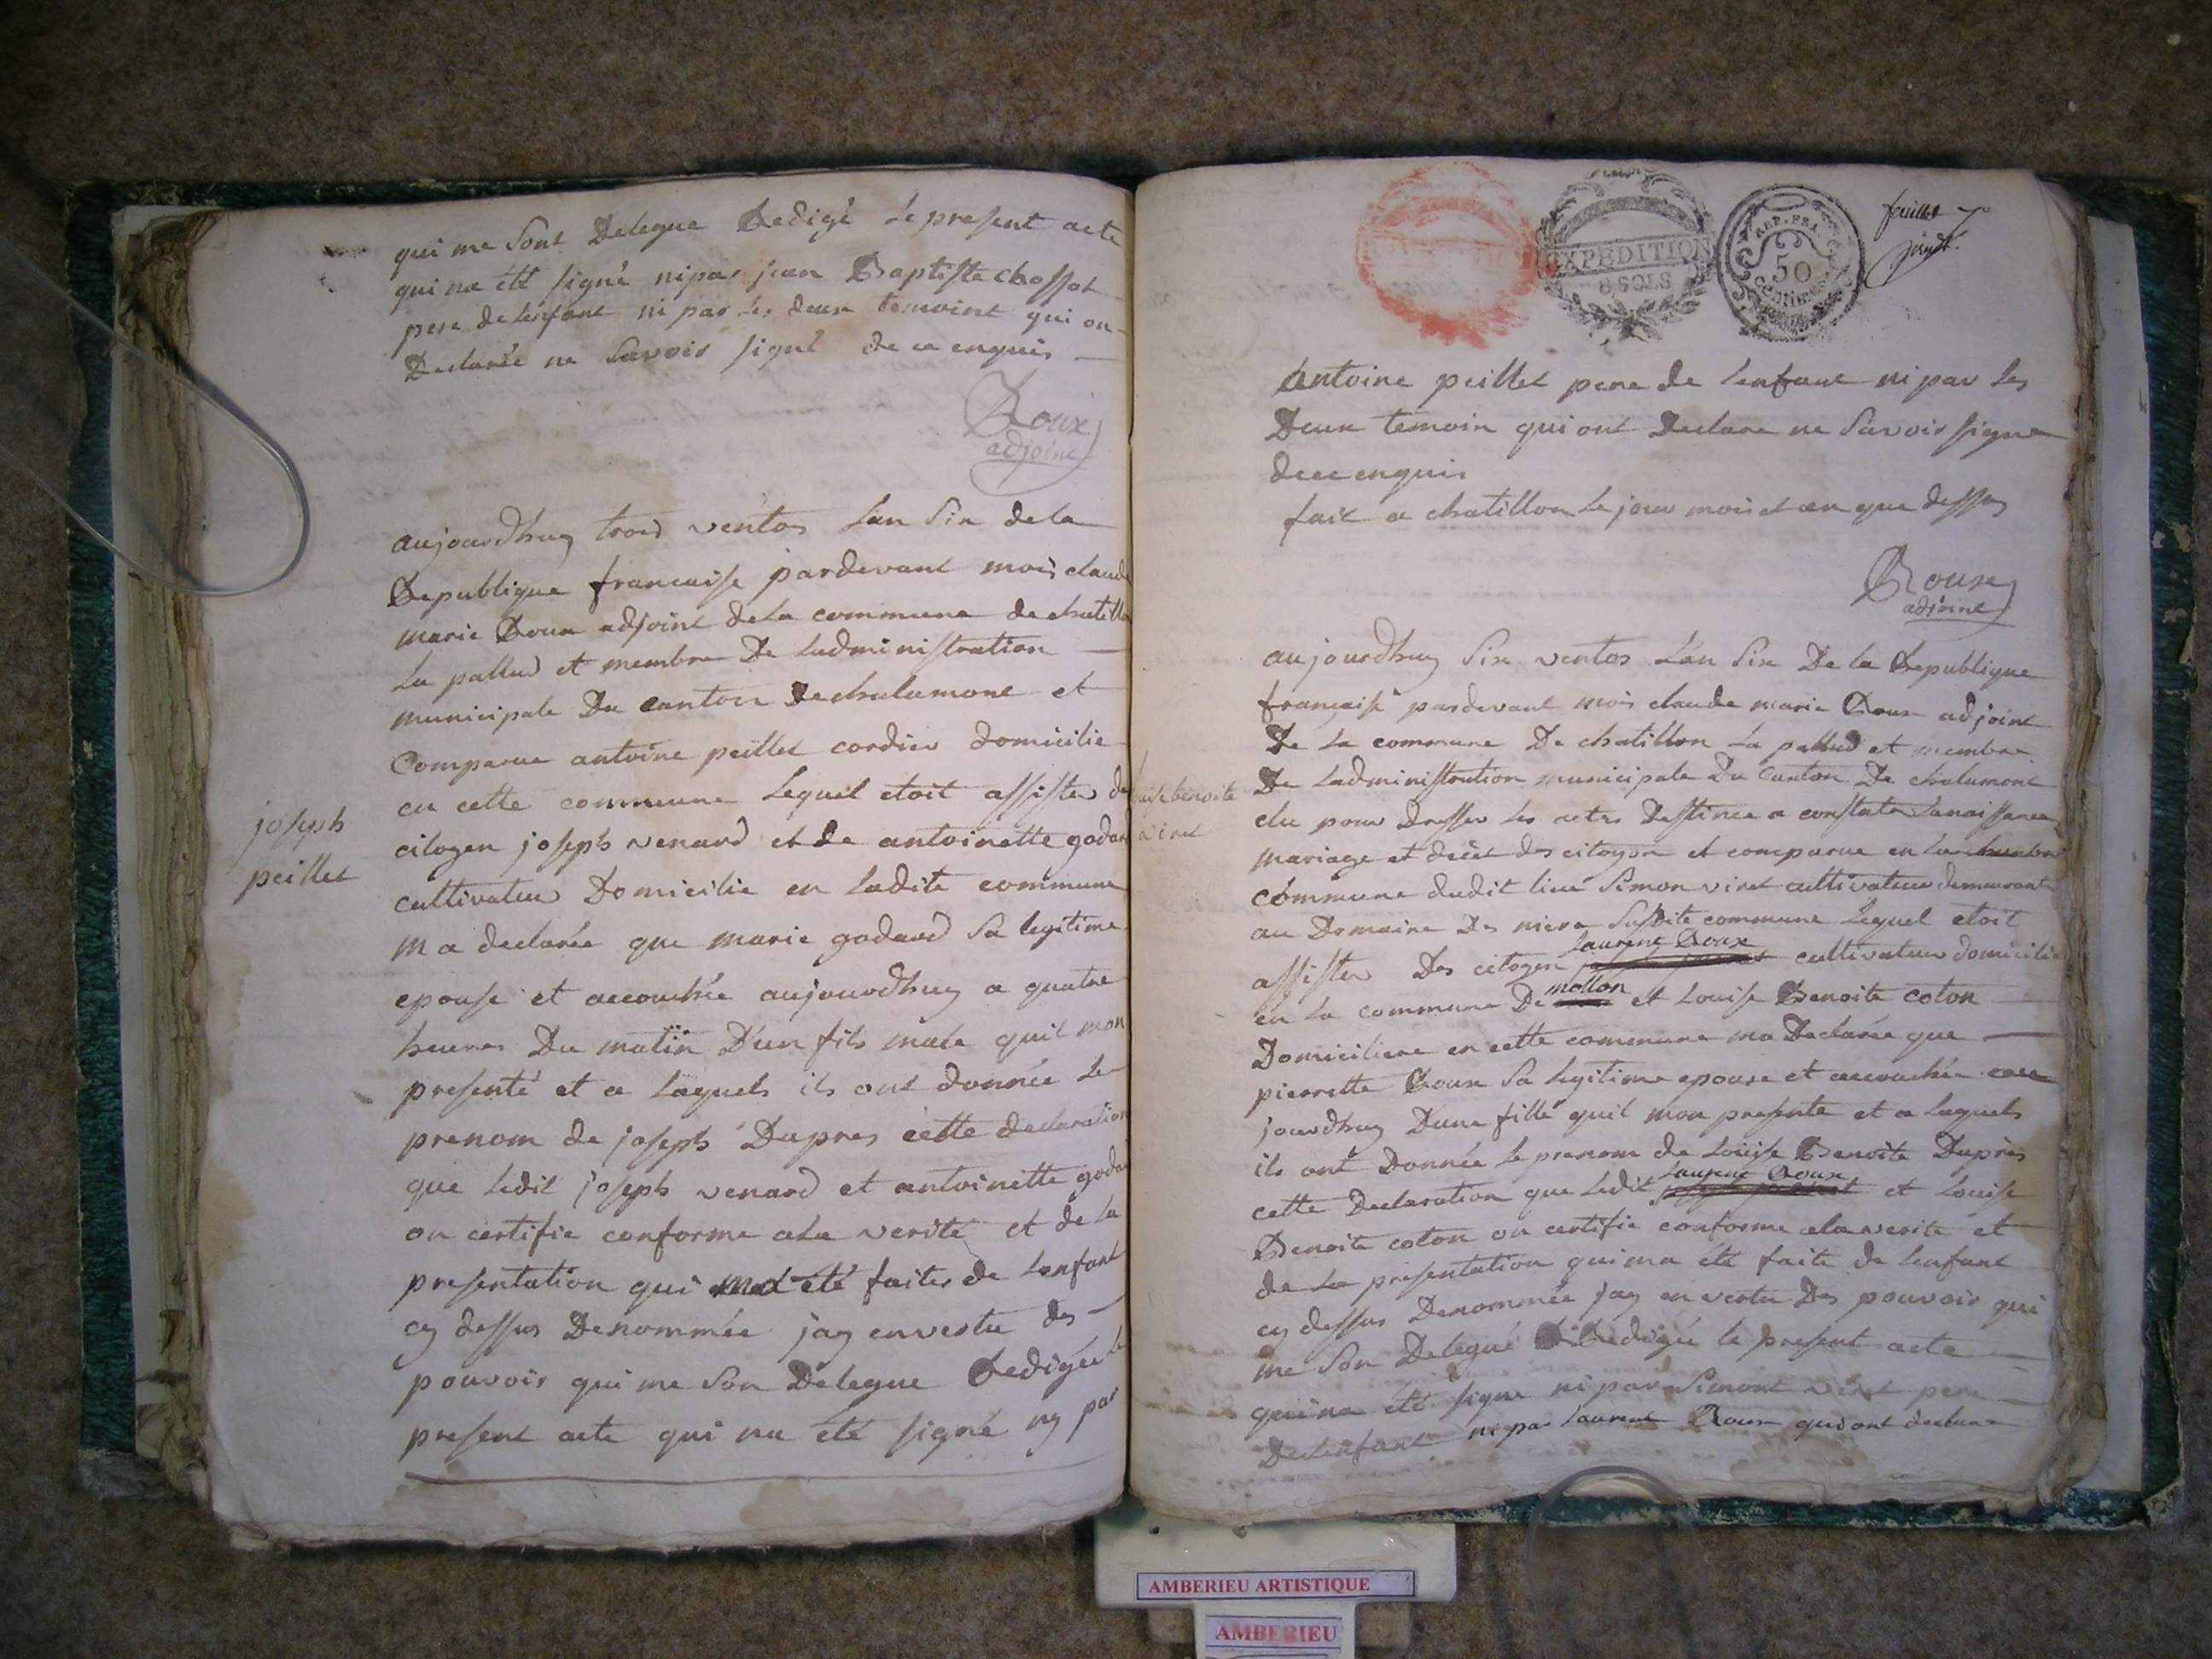 qui me sont Delegue Redigé le present acte
qui na été signé ni par jean Baptiste chossot
pere de lenfant ni par les deux temoint qui on
Declarée ne savoir signé de ce enquis
Roux
adjoint
aujourdhuy trois ventos lan six de la
Republique francaise pardevant mois claude
marie Roux adjoint de la commune de chatillon
la pallud et membre De ladministration
municipale Du canton De chalamont et
Comparue antoine peillet cordier domicilie
en cette commune lequel etoit assister de
joseph
peillet
citogen joseph venard et de antoinette godar
cultivateur Domicilie en ladite commune
ma declarée que marie godard sa legitime
epouse et accouchée aujourdhuy a quatre
heures Du matin D'un fils male quil mon
presenté et a laquels ils ont donnée le
prenom de joseph Dapres cette declaration
que ledit joseph venard et antoinette godar
on certifie conforme ala verité et de la
presentation qui ma été faites de lenfant
cy dessus Denommée jay en vestu des
pouvoir qui me son Delegue Redigée le
present acte qui na été signé ny par
EXPEDITION
6 SOLS
REP. FRA.
50
centimes
feuillet 7
antoine peillet pere de lenfant ni par les
Deux temoin qui ont Declare ne savoir signe
de ce enquis
fait a chatillon le jour mois et an que dessus
Roux
adjoint
aujourdhuy six ventos L'an six De la Republique
française pardevant mois claude marie Roux adjoint
De la commune De chatillon la pallud et membre
De ladministration municipale Du Canton De chalamont
uise benoite
viret
elu pour Dresser les actes Destinee a constater la naissance
mariage et decet des citoyon et comparue en la
commune dudit lieu simon viret cultivateur demeurant
au Domaine Des susdite commune lequel etoit
assister Des citogen laurent Roux cultivateur domicilie
en la commune De mollon et Louise Benoite coton
Domiciliere en cette commune ma Declarée que
pierrette Roux sa legitime epouse et accouchée
jourdhuy Dune fille quil mon presente et a laquels
ils ont Donnée le prenom de Louise Benoite Dapres
cette Declaration que ledit laurent Roux et Louise
Benoite coton on certifie conforme ala verite et
de la presentation qui ma été faite de lenfant
cy dessus Denommée jay en vestu Des pouvoir qui
me son Delegué Redigée le present acte
qui na été signe ni par simont viret pere
De lenfant ni par laurent Roux qui ont declare
AMBERIEU ARTISTIQUE
AMBERIEU